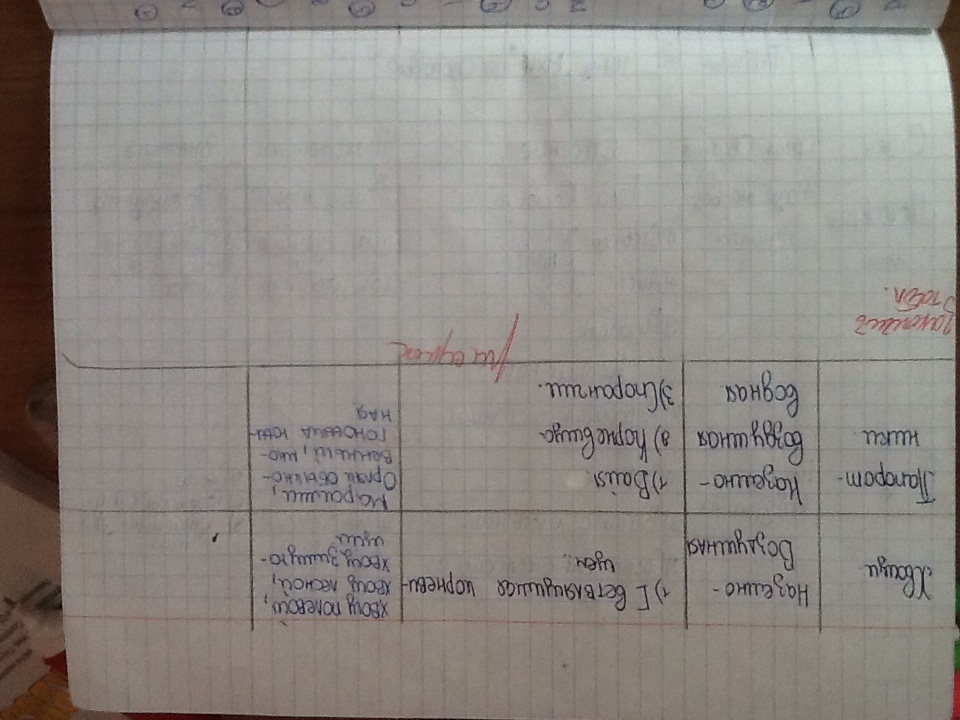 Хвощи
Наземно-
Воздушная
1) С ветвлящимся корневи-
щем.
хвощ полевой,
хвощ лесной,
хвощ зимую-
щий
Папорот-
ники
Наземно-
воздушная
водная
1) Вайя.
2) Корневища
3) Спорангии.
Марсилии,
Орляк обыкно-
венный, мно-
гоножка юж-
ная
рисунок
Закончить
табл.